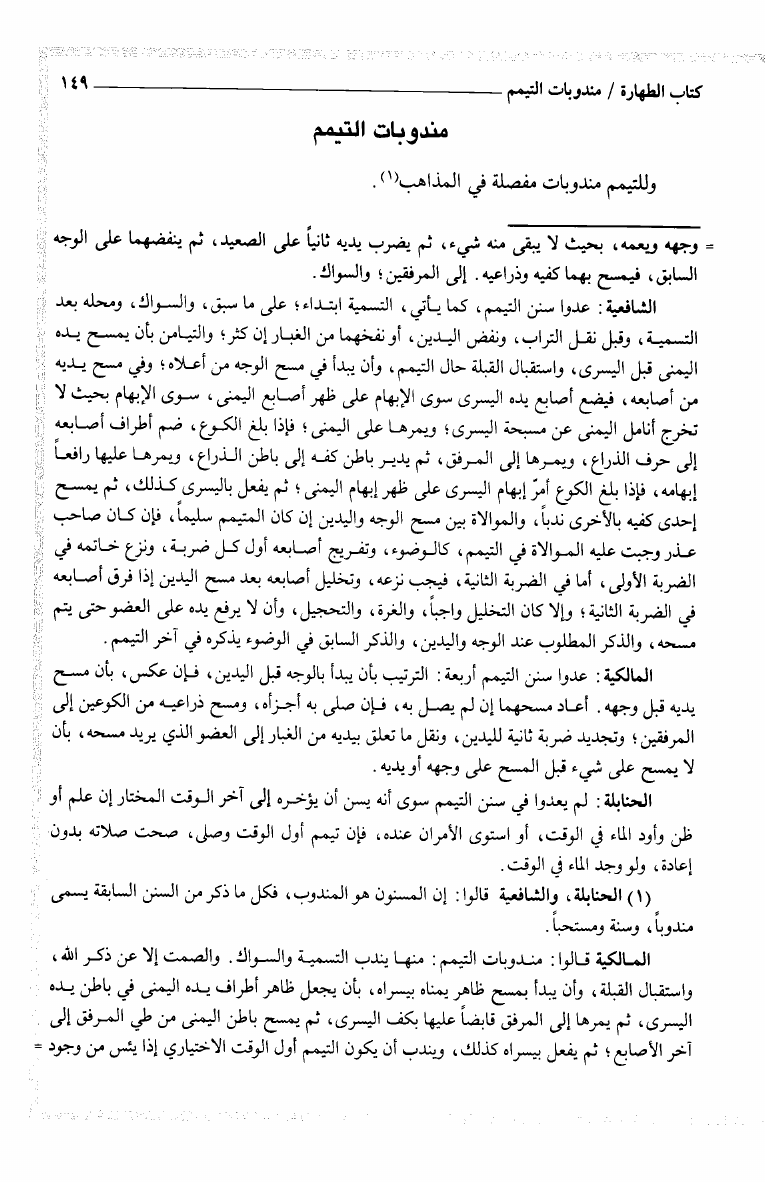 كتاب الطهارة / مندوبات التيمم ١٤٩
مندوبات التيمم
وللتيمم مندوبات مفصلة في المذاهب(١).
= وجهه ويعمه، بحيث لا يبقى منه شيء، ثم يضرب يديه ثانياً على الصعيد، ثم ينفضهما على الوجه
السابق، فيمسح بهما كفيه وذراعيه. إلى المرفقين؛ والسواك.
الشافعية: عدوا سنن التيمم، كما يأتي، التسمية ابتداء؛ على ما سبق، والسواك، ومحله بعد
التسمية، وقبل نقل التراب، ونفض اليدين، أو نفخهما من الغبار إن كثر؛ والتيامن بأن يمسح يده
اليمنى قبل اليسرى، واستقبال القبلة حال التيمم، وأن يبدأ في مسح الوجه من أعلاه؛ وفي مسح يديه
من أصابعه، فيضع أصابع يده اليسرى سوى الإبهام على ظهر أصابع اليمنى، سوى الإبهام بحيث لا
تخرج أنامل اليمنى عن مسبحة اليسرى؛ ويمرها على اليمنى؛ فإذا بلغ الكوع، ضم أطراف أصابعه
إلى حرف الذراع، ويمرها إلى المرفق، ثم يدير باطن كفه إلى باطن الذراع، ويمرها عليها رافعاً
إبهامه، فإذا بلغ الكوع أمرّ إبهام اليسرى على ظهر إبهام اليمنى؛ ثم يفعل باليسرى كذلك، ثم يمسح
إحدى كفيه بالأخرى ندباً، والموالاة بين مسح الوجه واليدين إن كان المتيمم سليماً، فإن كان صاحب
عذر وجبت عليه الموالاة في التيمم، كالوضوء، وتفريج أصابعه أول كل ضربة، ونزع خاتمه في
الضربة الأولى، أما في الضربة الثانية، فيجب نزعه، وتخليل أصابعه بعد مسح اليدين إذا فرق أصابعه
في الضربة الثانية؛ وإلا كان التخليل واجباً، والغرة، والتحجيل، وأن لا يرفع يده على العضو حتى يتم
مسحه، والذكر المطلوب عند الوجه واليدين، والذكر السابق في الوضوء يذكره في آخر التيمم.
المالكية: عدوا سنن التيمم أربعة: الترتيب بأن يبدأ بالوجه قبل اليدين، فإن عكس، بأن مسح
يديه قبل وجهه. أعاد مسحهما إن لم يصل به، فإن صلى به أجزأه، ومسح ذراعيه من الكوعين إلى
المرفقين؛ وتجديد ضربة ثانية لليدين، ونقل ما تعلق بيديه من الغبار إلى العضو الذي يريد مسحه، بأن
لا يمسح على شيء قبل المسح على وجهه أو يديه.
الحنابلة: لم يعدوا في سنن التيمم سوى أنه يسن أن يؤخره إلى آخر الوقت المختار إن علم أو
ظن وأود الماء في الوقت، أو استوى الأمران عنده، فإن تيمم أول الوقت وصلى، صحت صلاته بدون
إعادة، ولو وجد الماء في الوقت.
(١) الحنابلة، والشافعية قالوا: إن المسنون هو المندوب، فكل ما ذكر من السنن السابقة يسمى
مندوباً، وسنة ومستحباً.
المالكية قالوا: مندوبات التيمم: منها يندب التسمية والسواك. والصمت إلا عن ذكر الله،
واستقبال القبلة، وأن يبدأ بمسح ظاهر يمناه بيسراه، بأن يجعل ظاهر أطراف يده اليمنى في باطن يده
اليسرى، ثم يمرها إلى المرفق قابضاً عليها بكف اليسرى، ثم يمسح باطن اليمنى من طي المرفق إلى
آخر الأصابع؛ ثم يفعل بيسراه كذلك، ويندب أن يكون التيمم أول الوقت الاختياري إذا يئس من وجود =